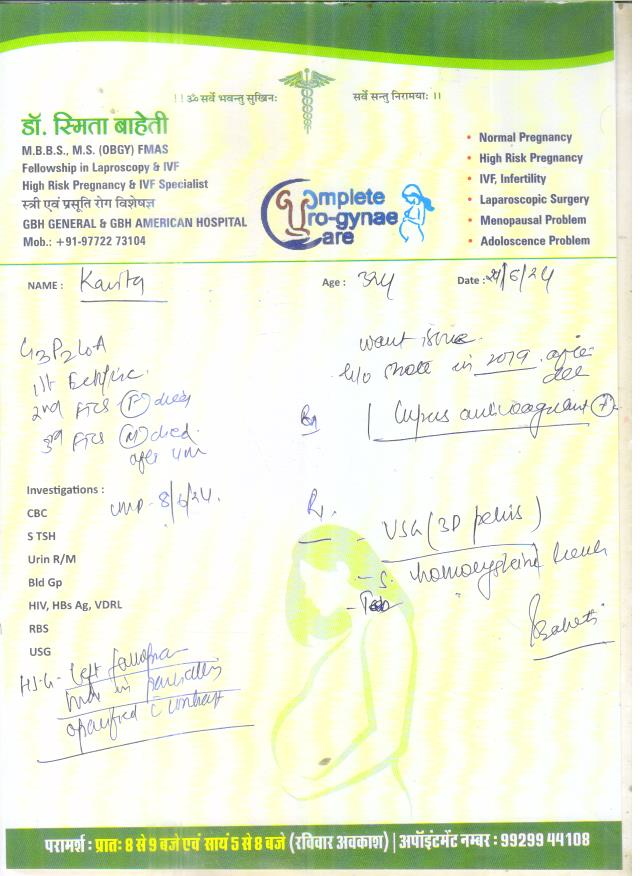 ।। ॐ सर्वे भवन्तु सुखिनः सर्वे सन्तु निरामयाः ।।
डॉ. स्मिता बाहेती
M.B.B.S., M.S. (OBGY) FMAS
Fellowship in Laproscopy & IVF
High Risk Pregnancy & IVF Specialist
स्त्री एवं प्रसूति रोग विशेषज्ञ
GBH GENERAL & GBH AMERICAN HOSPITAL
Mob.: +91-97722 73104
Complete
Uro-gynae
Care
• Normal Pregnancy
• High Risk Pregnancy
• IVF, Infertility
• Laparoscopic Surgery
• Menopausal Problem
• Adoloscence Problem
NAME : Kavita Age : 32y Date : /6/24
G3P2L0A
1st
2nd FTCS (F) died
3rd FTCS (M) died
after 4m
want issue
h/o in 2019 after
Lupus anticoagulant
Investigations :
LMP - 8/6/24
CBC
S TSH
Urin R/M
Bld Gp
HIV, HBs Ag, VDRL
RBS
USG
Rx
- USG (3D pelvis)
- S. homocysteine level
HSG - Left fallopian
tube is partially
opacified c contrast
Baheti
परामर्श : प्रातः 8 से 9 बजे एवं सायं 5 से 8 बजे (रविवार अवकाश) | अपॉइंटमेंट नम्बर : 99299 44108